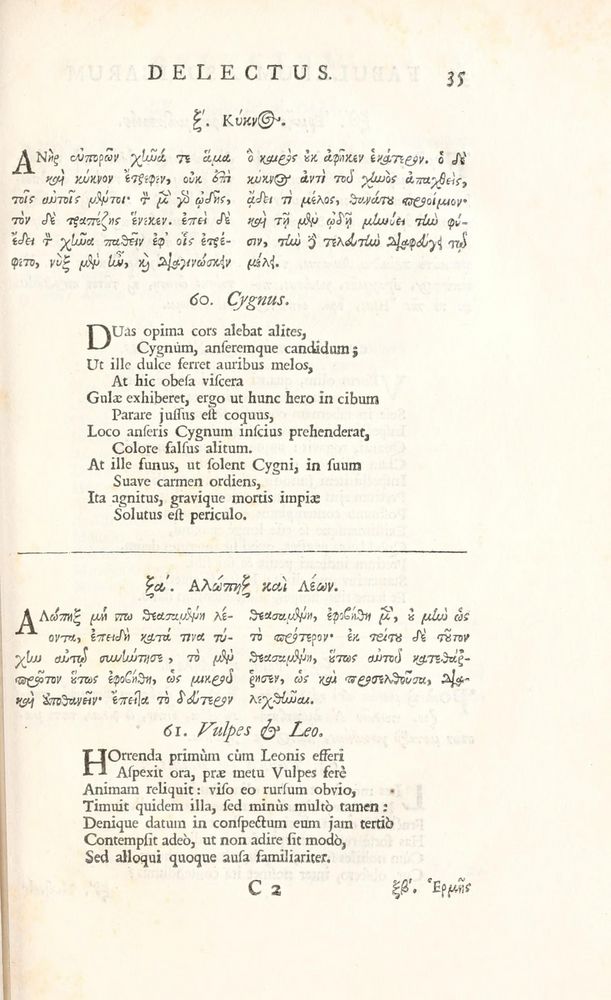 DELECTUS. 35
ξʹ. Κύκνος.
ΑΝὴρ εὐπορῶν χῆνά τε ἅμα
καὶ κύκνον ἔτρεφεν, οὐκ ἐπὶ
τοῖς αὐτοῖς μέντοι· τὸν μὲν γὰρ ᾠδῆς,
τὸν δὲ τραπέζης ἕνεκεν. ἐπεὶ δὲ
ἔδει τὸν χῆνα παθεῖν ἐφ᾽ οἷς ἐτρέ-
φετο, νὺξ μὲν ἦν, καὶ διαγινώσκειν
ὁ καιρὸς οὐκ ἀφῆκεν ἑκάτερον. ὁ δὲ
κύκνος ἀντὶ τοῦ χηνὸς ἀπαχθεὶς,
ᾄδει τὶ μέλος, θανάτου προοίμιον·
καὶ τῇ μὲν ᾠδῇ μηνύει τὴν φύ-
σιν, τὴν δὲ τελευτὴν διαφεύγει τῷ
μέλει.
60. Cygnus.
DUas opima cors alebat alites,
Cygnúm, anſeremque candidum;
Ut ille dulce ferret auribus melos,
At hic obeſa viſcera
Gulæ exhiberet, ergo ut hunc hero in cibum
Parare juſſus eſt coquus,
Loco anſeris Cygnum inſcius prehenderat,
Colore falſus alitum.
At ille funus, ut ſolent Cygni, in ſuum
Suave carmen ordiens,
Ita agnitus, gravique mortis impiæ
Solutus eſt periculo.
ξαʹ. Αλώπηξ καὶ Λέων.
ΑΛώπηξ μή πω θεασαμένη λέ-
οντα, ἐπειδὴ κατά τινα τύ-
χην αὐτῷ συνήντησε, τὸ μὲν
πρῶτον οὕτως ἐφοβήθη, ὡς μικροῦ
καὶ ἀποθανεῖν· ἔπειτα τὸ δεύτερον
θεασαμένη, ἐφοβήθη μὲν, οὐ μὴν ὡς
τὸ πρότερον· ἐκ τρίτου δὲ τοῦτον
θεασαμένη, οὕτως αὐτοῦ κατεθάρ-
ρησεν, ὡς καὶ προσελθοῦσα, δια-
λεχθῆναι.
61. Vulpes & Leo.
HOrrenda primùm cùm Leonis efferi
Aſpexit ora, præ metu Vulpes ferè
Animam reliquit: viſo eo rurſum obvio,
Timuit quidem illa, ſed minùs multò tamen:
Denique datum in conſpectum eum jam tertiò
Contempſit adeò, ut non adire ſit modò,
Sed alloqui quoque auſa familiariter.
C 2 ξβʹ. Ἑρμῆς